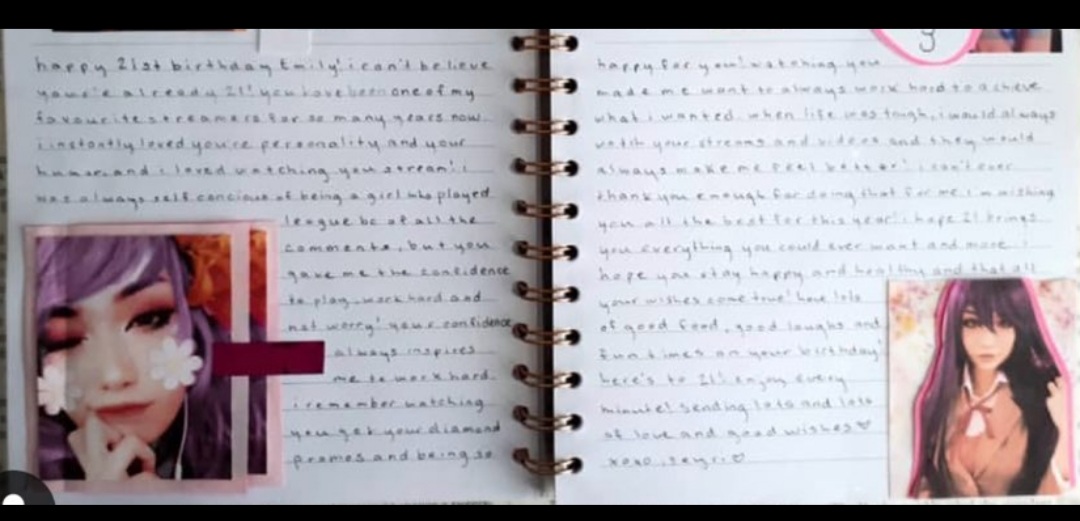 happy 21st birthday Emily! i can't believe
your'e already 21! you have been one of my
favourite streamers for so many years now.
i instantly loved you're personality and your
humor and i loved watching you stream! i
was always self concious of being a girl who played
league bc of all the
comments, but you
gave me the confidence
to play, work hard and
not worry! your confidence
always inspires
me to work hard.
i remember watching
you get your diamond
promos and being so
3
happy for you! watching you
made me want to always work hard to achieve
what i wanted. when life was tough, i would always
watch your streams and videos and they would
always make me feel better! i can't ever
thank you enough for doing that for me. i'm wishing
you all the best for this year! i hope 21 brings
you everything you could ever want and more. i
hope you stay happy and healthy and that all
your wishes come true! have lots
of good food, good laughs and
fun times on your birthday!
here's to 21! enjoy every
minute! sending lots and lots
of love and good wishes♡
xoxo, seyri♡